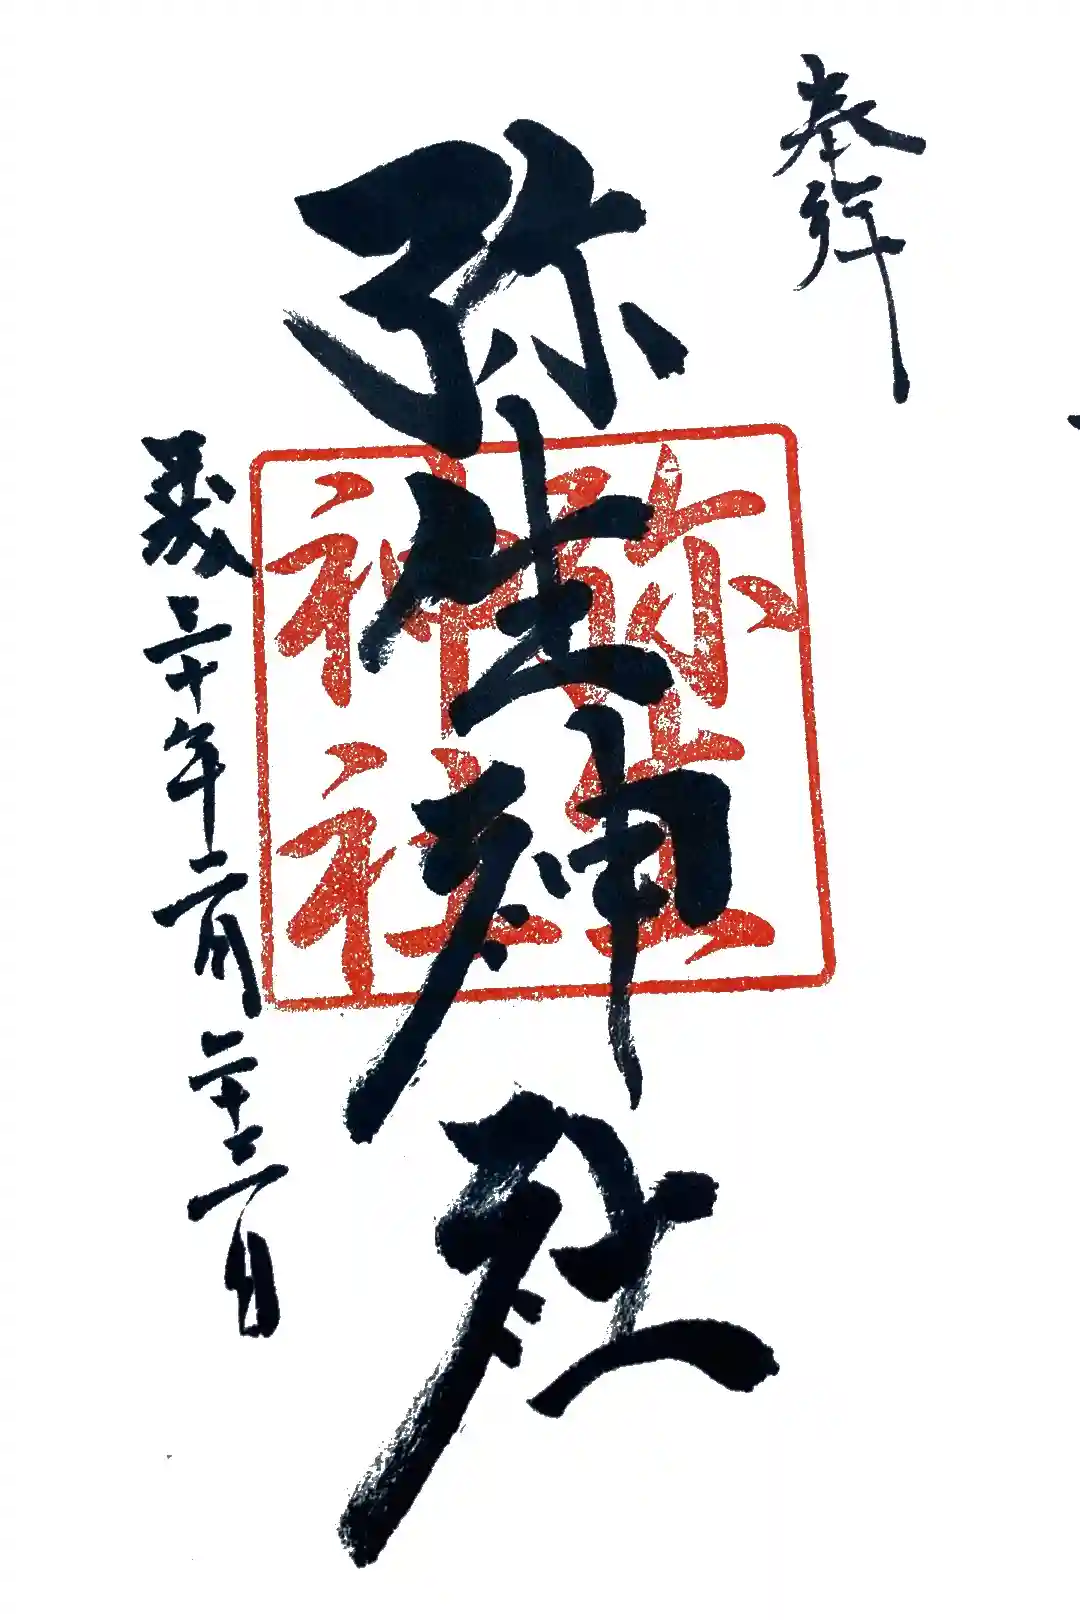 奉拝
弥生神社
弥生
神社
平成三十年二月二十二日